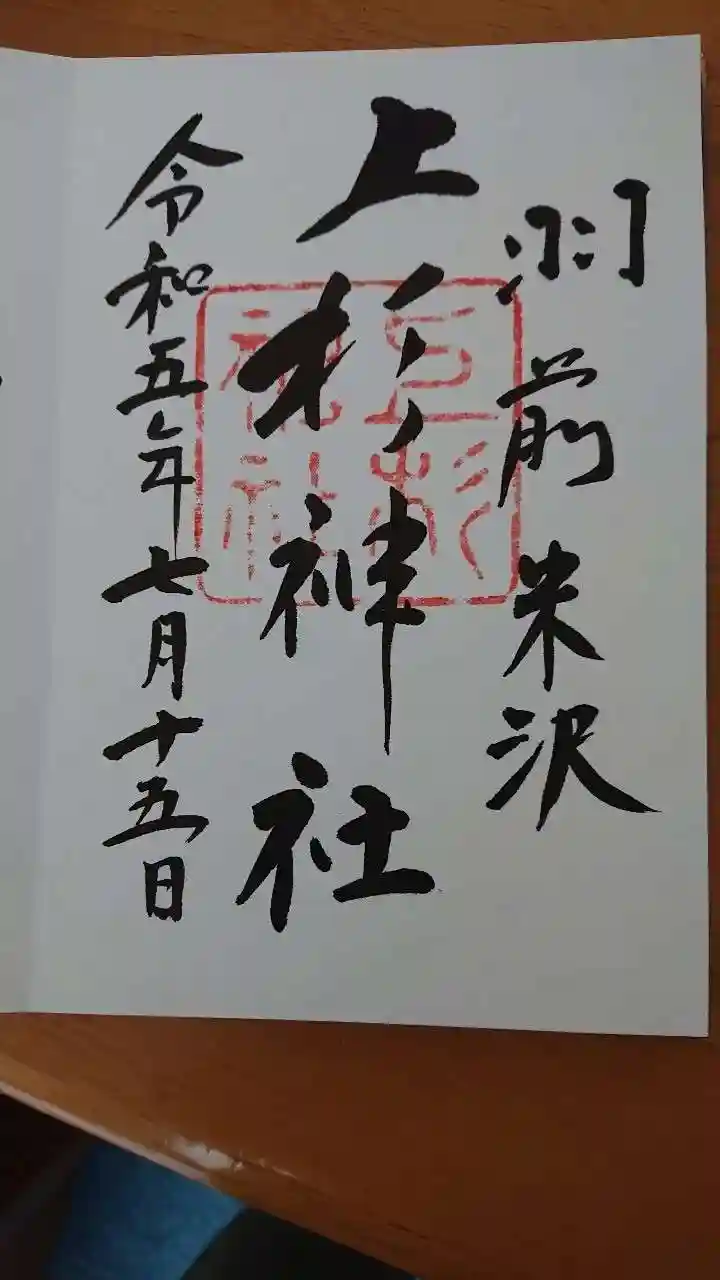 羽前米沢
上杉神社
上杉
神社
令和五年七月十五日